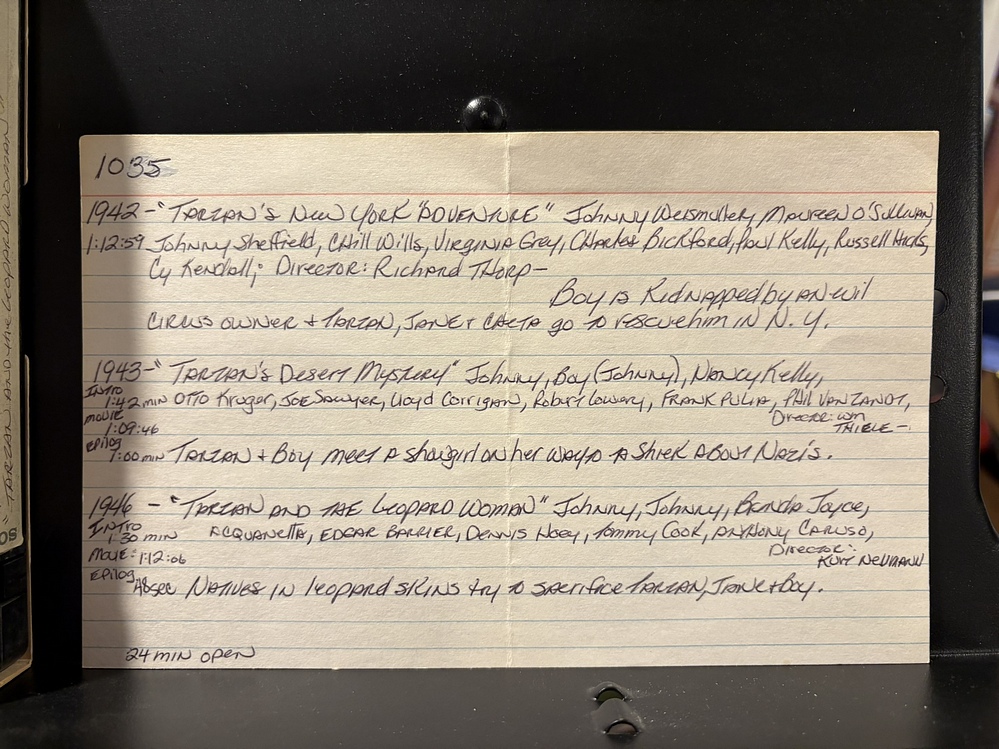 1035
1942-"TARZAN'S NEW YORK "ADVENTURE" Johnny Weismuller, MAUREEN O'Sullivan,
1:12:59 Johnny Sheffield, CHill Wills, Virginia Grey, CHarles Bickford, Paul Kelly, Russell Hicks,
Cy Kendall; Director: Richard THorp-
Boy is Kidnapped by AN evil
CIRCUS OWNER + TARZAN, JANE + CHETA go to rescue him IN N.Y.
1943-"TARZAN'S Desert Mystery" Johnny, Boy (Johnny), NANCY Kelly,
INTRO
1:42 min OTTO Kruger, JOE SAWYER, Lloyd Corrigan, Robert Lowery, FRANK PULIA, PHIL VAN ZANDT,
MOVIE
1:09:46
Director: Wm
THIELE-
Epilog
1:00 min TARZAN + Boy meet A showgirl on her way to A SHiek ABOUT NAZIS.
1946 - "TARZAN AND THE Leopard WOMAN" Johnny, Johnny, Brenda Joyce,
INTRO
1:30 min ACQUANETTA, EDGAR BARRIER, DENNIS Hoey, Tommy COOK, ANTHONY CARUSO,
Director:
KURT NEUMANN
MOVIE: 1:12:06
EPilog
48 sec NATIVES IN leopard SKINS try to SACRIFICE TARZAN, JANE + Boy.
24 min OPEN
"TARZAN AND the LEOPARD WOMAN"